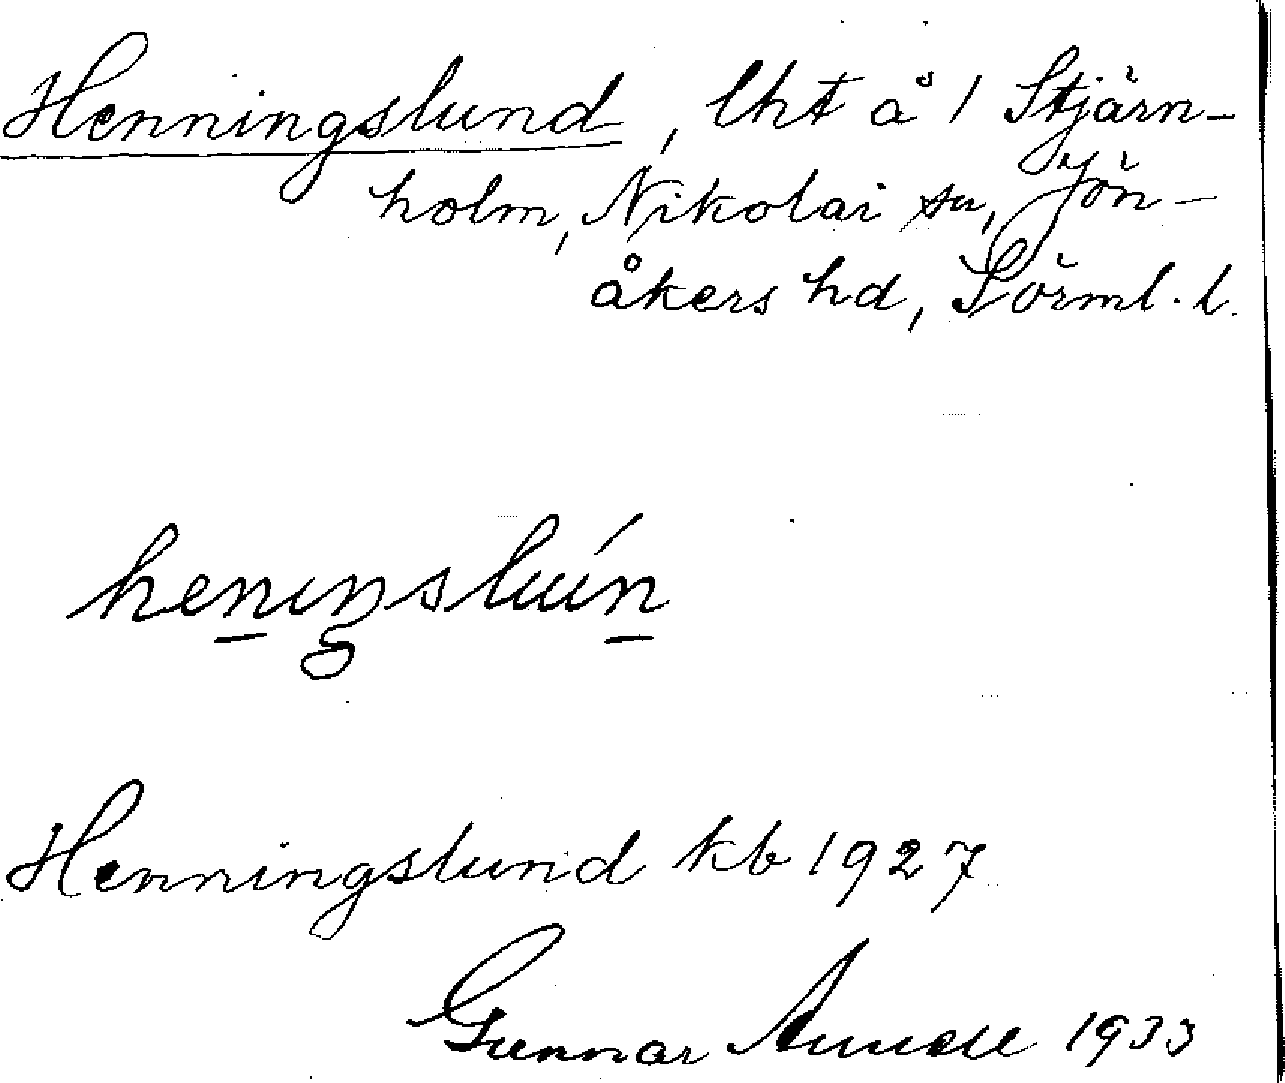 Henningslund, lht å 1 Stjärn-
holm, Nikolai sn, Jön-
åkers hd, Sörml. l.
Henningslund kb 1927
Gunnar 1933